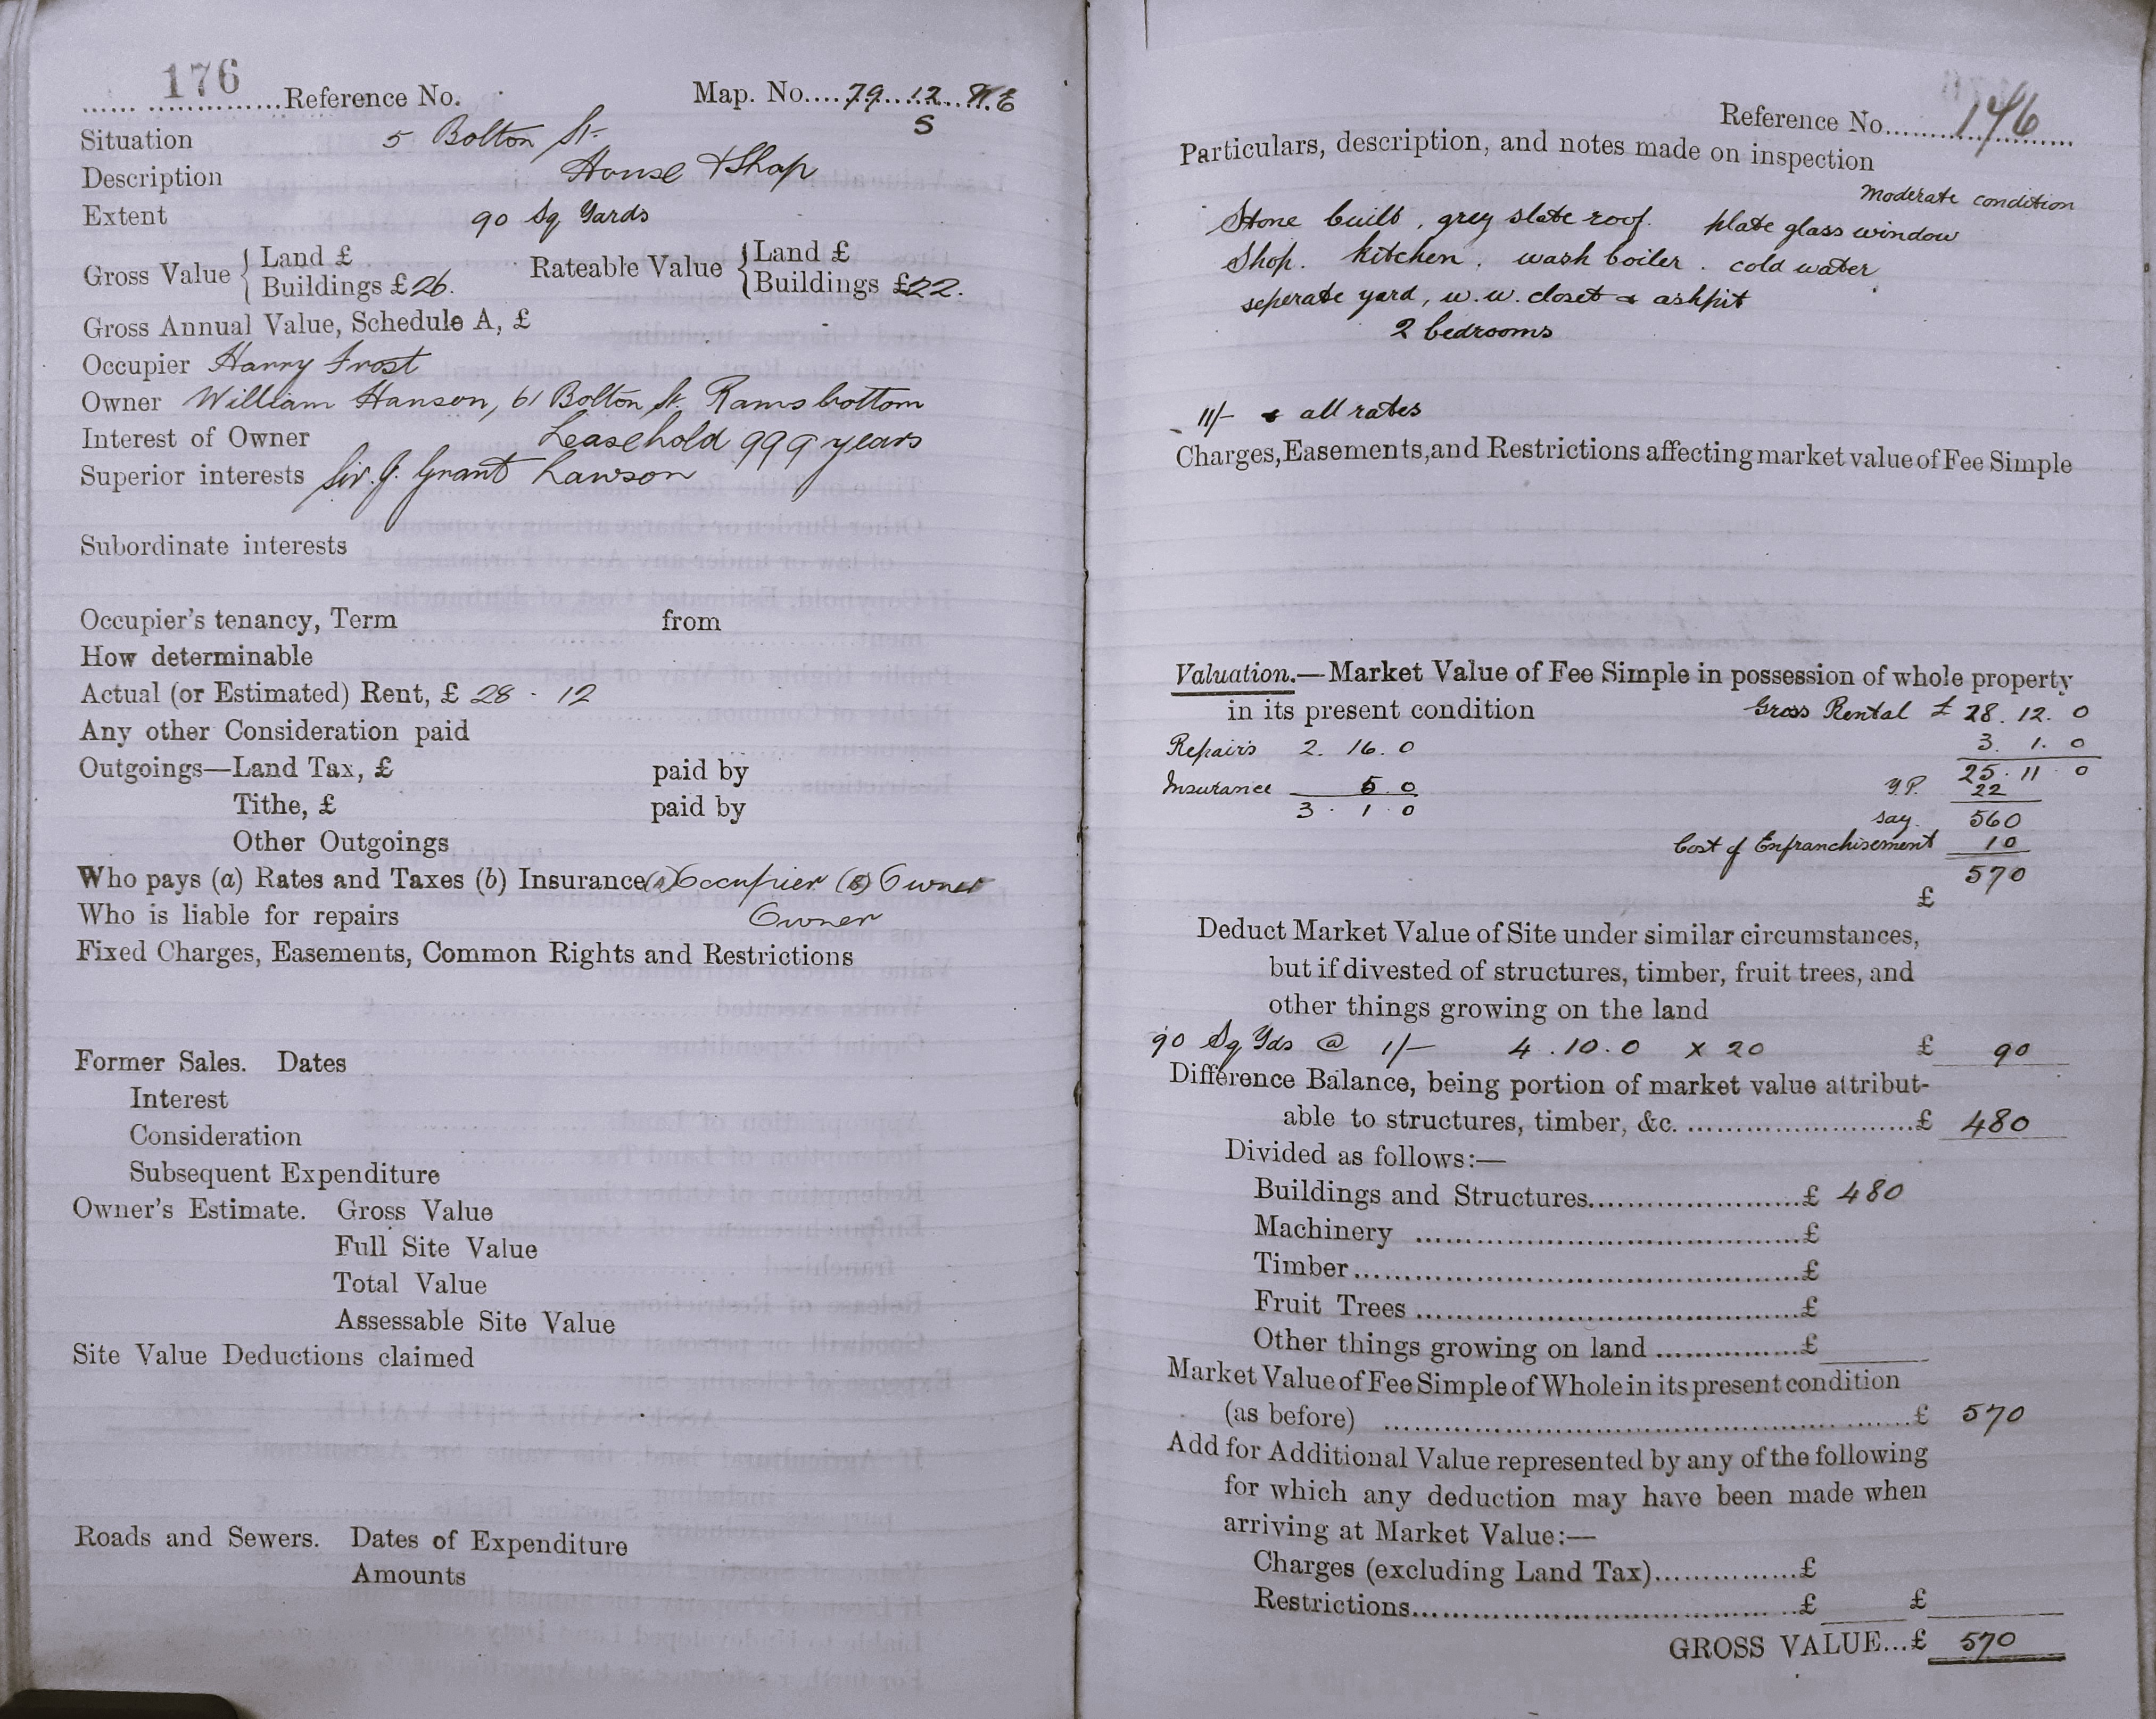 176
Reference No. Map. No. 79. 12. N.E
S
Situation 5 Bolton St.
Description House & Shop
Extent 90 Sq Yards
Gross Value { Land £ Rateable Value { Land £
Buildings £26. Buildings £22.
Gross Annual Value, Schedule A, £
Occupier Harry Frost
Owner William Hanson, 61 Bolton St. Ramsbottom
Interest of Owner Leasehold 999 years
Superior interests Sir. J. Grant Lawson
Subordinate interests
Occupier's tenancy, Term from
How determinable
Actual (or Estimated) Rent, £ 28 - 12
Any other Consideration paid
Outgoings—Land Tax, £ paid by
Tithe, £ paid by
Other Outgoings
Who pays (a) Rates and Taxes (b) Insurance (a) Occupier (B) Owner
Who is liable for repairs Owner
Fixed Charges, Easements, Common Rights and Restrictions
Former Sales. Dates
Interest
Consideration
Subsequent Expenditure
Owner's Estimate. Gross Value
Full Site Value
Total Value
Assessable Site Value
Site Value Deductions claimed
Roads and Sewers. Dates of Expenditure
Amounts
Reference No. 176
Particulars, description, and notes made on inspection
Moderate condition
Stone built, grey slate roof. plate glass window
Shop. kitchen. wash boiler. cold water
seperate yard, w.w. closet & ashpit
2 bedrooms
11/- & all rates
Charges, Easements, and Restrictions affecting market value of Fee Simple
Valuation.—Market Value of Fee Simple in possession of whole property
in its present condition Gross Rental £ 28. 12. 0
Repairs 2. 16. 0 3. 1. 0
25. 11. 0
Insurance 5. 0 Y.P. 22
3. 1. 0 say. 560
Cost of Enfranchisement 10
570
£
Deduct Market Value of Site under similar circumstances,
but if divested of structures, timber, fruit trees, and
other things growing on the land
90 Sq Yds @ 1/- 4. 10. 0 x 20 £ 90
Difference Balance, being portion of market value attribut-
able to structures, timber, &c. £ 480
Divided as follows:—
Buildings and Structures £ 480
Machinery £
Timber £
Fruit Trees £
Other things growing on land £
Market Value of Fee Simple of Whole in its present condition
(as before) £ 570
Add for Additional Value represented by any of the following
for which any deduction may have been made when
arriving at Market Value:—
Charges (excluding Land Tax) £
Restrictions £ £
GROSS VALUE... £ 570